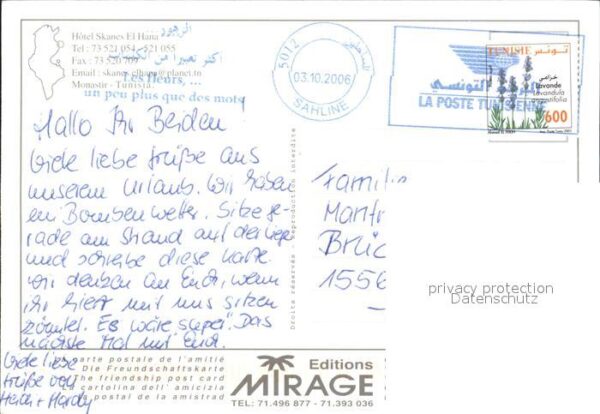 Hôtel Skanes El Hana
Tel : 73 521 054 - 521 055
Fax : 73 520 709
Email : skanes.elhana@planet.tn
Monastir - Tunisia
الزهور...
أكثر تعبيرا من الكلمات
Les fleurs, ...
un peu plus que des mots
5012
03.10.2006
SAHLINE
البريد التونسي
LA POSTE TUNISIENNE
TUNISIE تونس
خزامى
Lavande
Lavandula
angustifolia
600
Hallo Ihr Beiden
Viele liebe Grüße aus
unserem Urlaub. Wir haben
ein Bombenwetter. Sitze ge-
rade am Strand auf der Liege
und schreibe diese Karte
wir denken an Euch, wenn
ihr hier mit uns sitzen
könntet. Es wäre super. Das
nächste Mal mit Euch.
Viele liebe
Grüße von
Heidi + Hardy
Familie
Manfr
Brüc
1556
privacy protection
Datenschutz
Droits réservés - Reproduction interdite
carte postale de l'amitié
Die Freundschaftskarte
The friendship post card
cartolina dell' amicizia
postal de la amistad
Editions
MIRAGE
TEL: 71.496 877 - 71.393 036